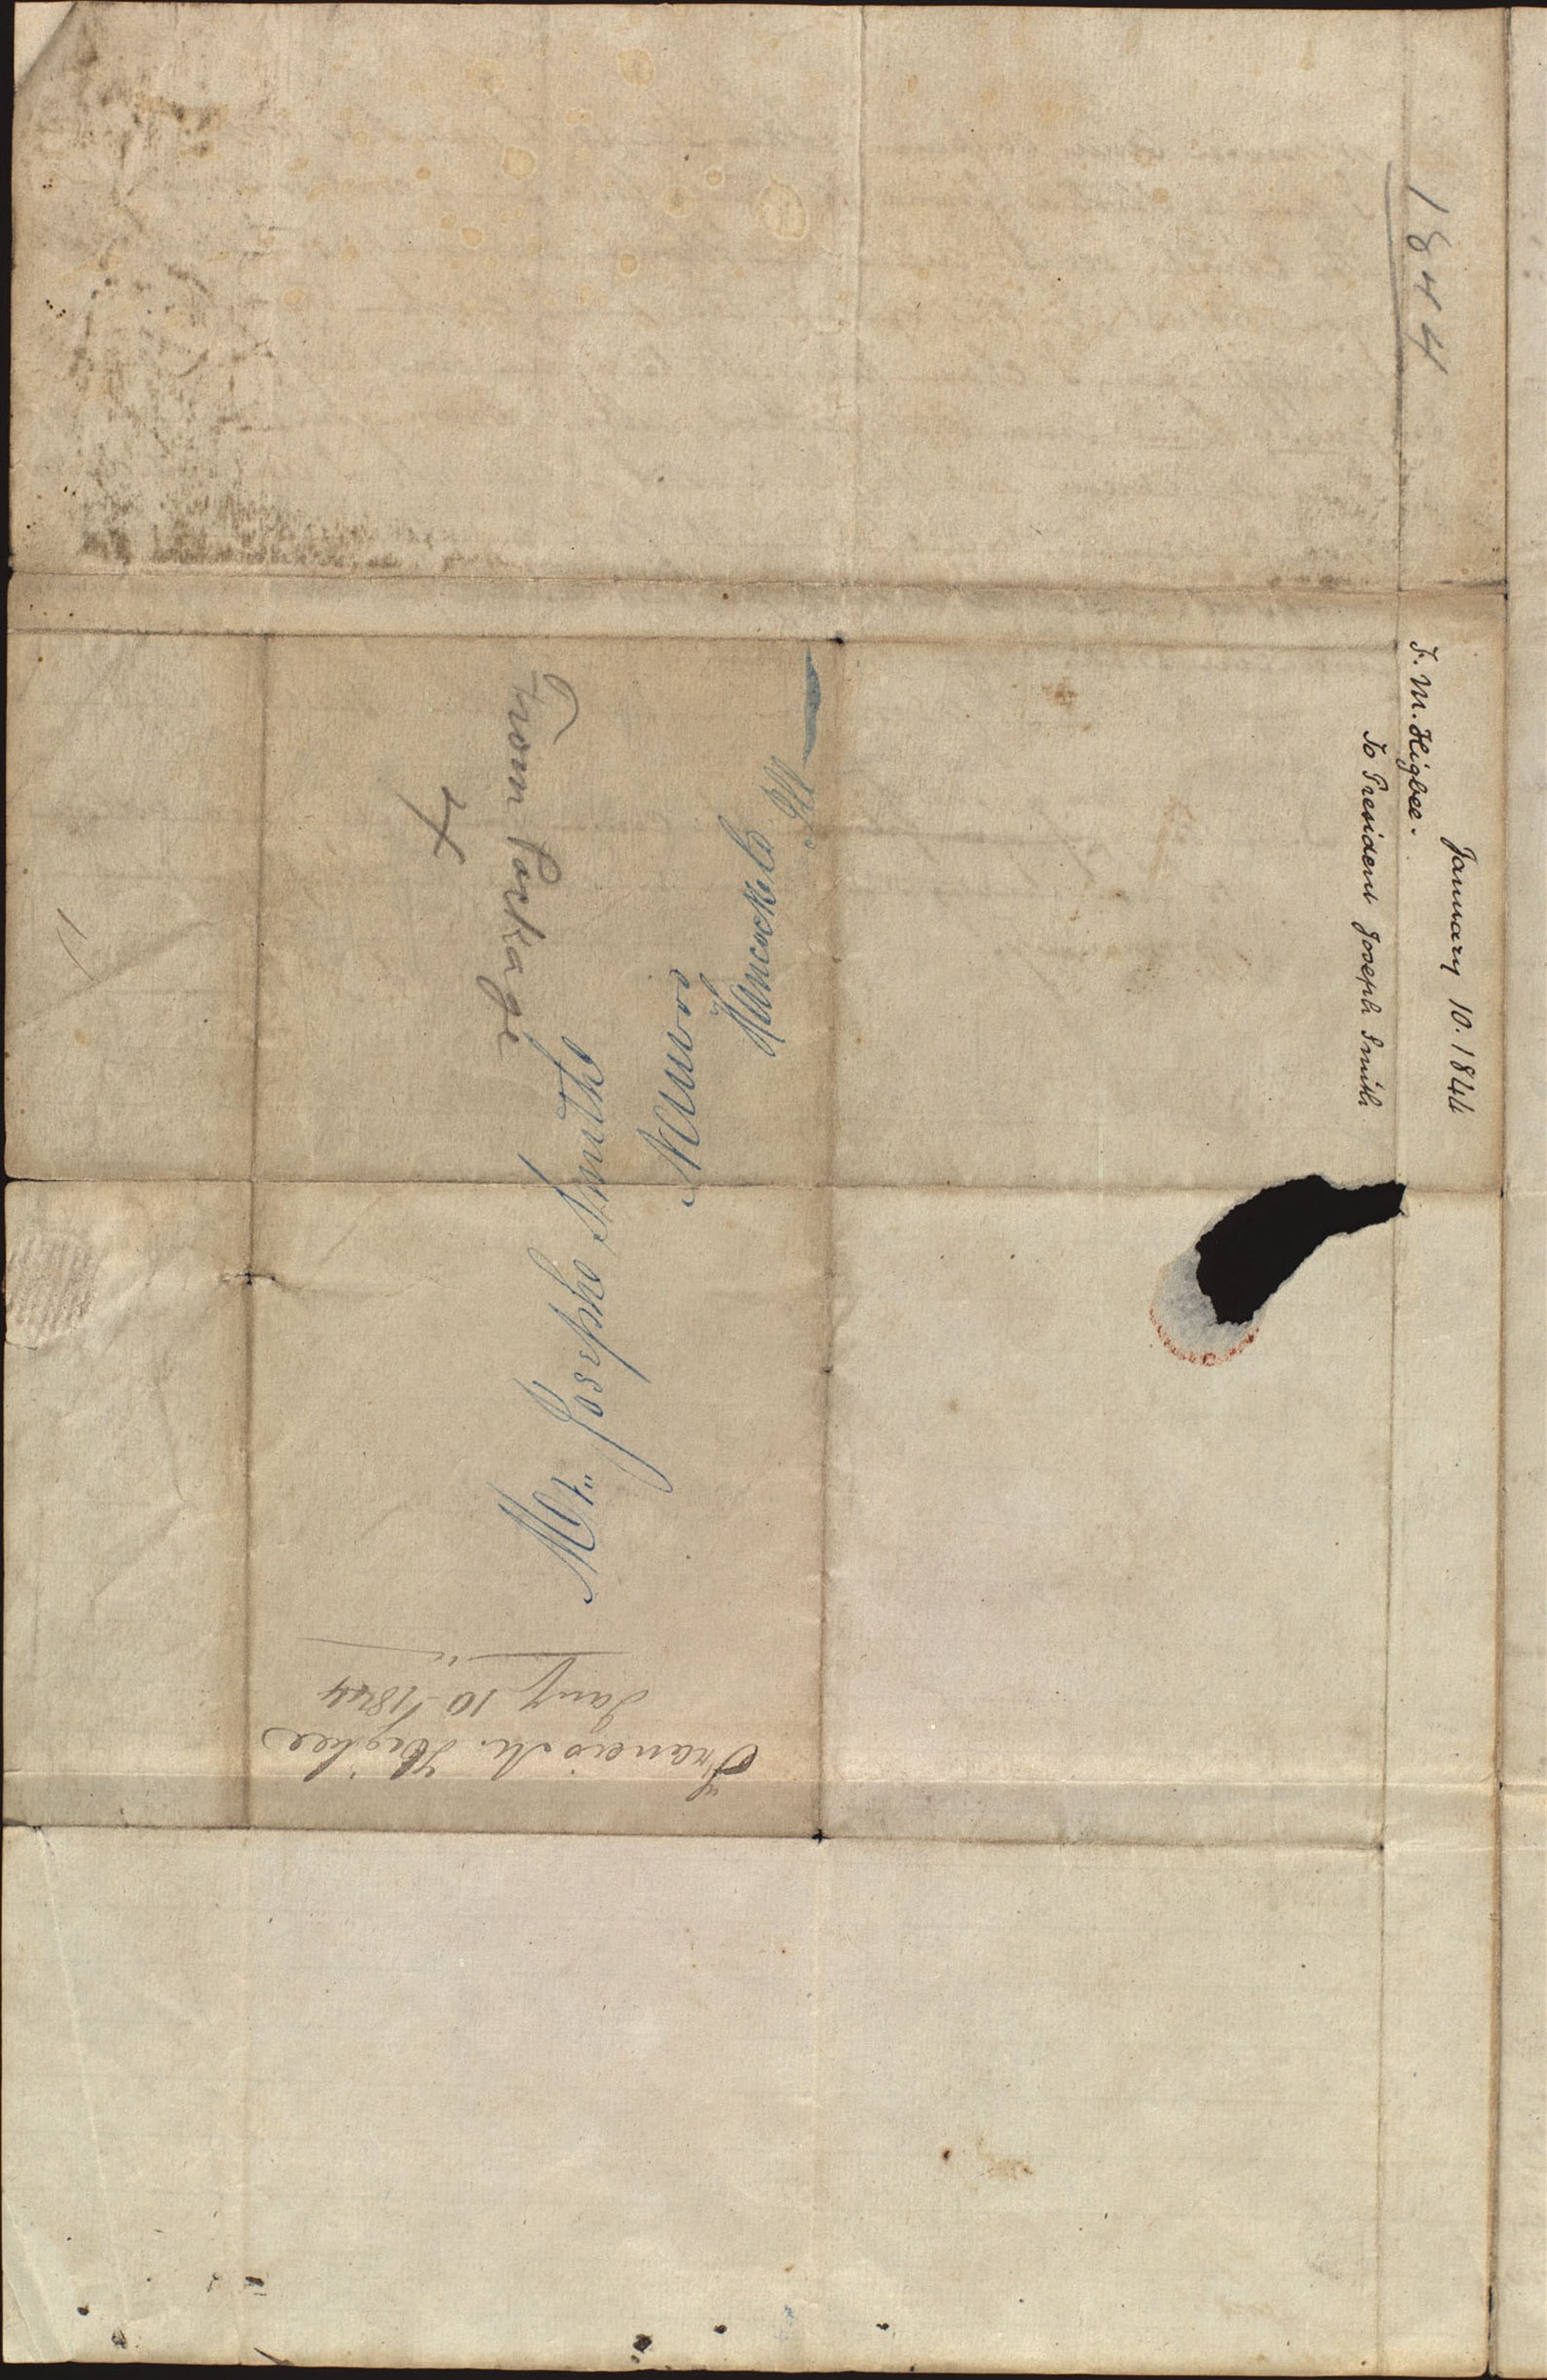 1844
January 10. 1844
F. M. Higbee.
To President Joseph Smith
Mr. Joseph Smith
Nauvoo
Hancock Co
Ill
From Package
4
Francis M. Higbee
Jany 10—1844